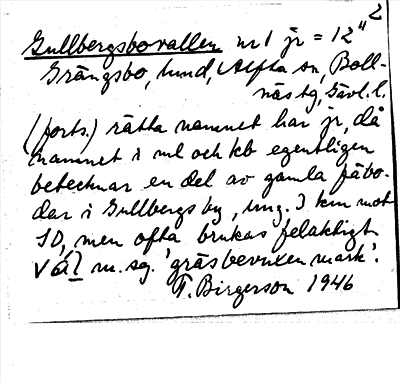 2
Gullbergsbovallen nr 1 jr = 12"
Grängsbo, hmd, Alfta sn, Boll-
näs tg, Gävl. l.
(forts.) rätta namnet har jr, då
namnet i ml och kb egentligen
betecknar en del av gamla fäbo-
dar i Gullbergsby, ung. 3 km mot
SO, men ofta brukas felaktigt.
Vál m. sg. 'gräsbevuxen mark'.
T. Birgerson 1946